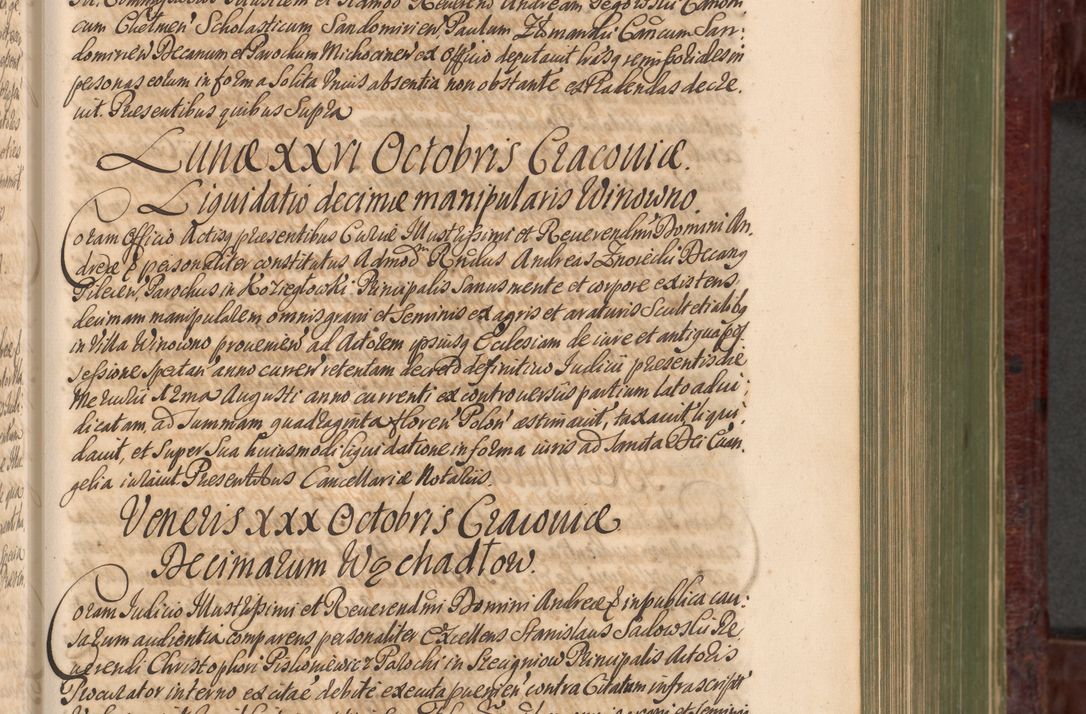 cum Chelmen' Scholasticum Sandomirien' Paulum Złomanski Cancum San:
domirien' Decanum et Parochum Michocinen' ex Officio deputauit hasq remissoriales in
personas eorum in forma solita vnius absentia non obstante extradendas decre.
uit. Presentibus quibus Supra
Lunæ XXVI Octobris Cracouiæ.
Liquidatio decimæ manipularis Winowno
Coram Officio Actisq presentibus Curiæ Illustrissimi et Reuerendmi Domini An.
dreæ & personaliter constitutus Admodm Rndus Andreas Znoiecki Decanq
Pilecien', Parochus in Koziegłowki Principalis Sanus mente et corpore existens,
decimam manipularem omnis grani et Seminis ex agris et araturis Sculteti alibq
in Villa Winowno prouenien' ad Actorem ipsiusq Ecclesiam de iure et antiqua pos
sessione spectan' anno curren' retentam decreto definitiuo Iudicii presentis die
Mercurii 12ma Augusti anno currenti ex controuersiis partium lato adiu:
dicatam, ad Summam quadraginta floren' Polon' æstimauit, taxauit, liqui
dauit, et Super Sua huiusmodi liquidatione in forma iuris ad Sancta Dei Euan,
gelia iurauit Presentibus Cancellariæ Notariis.
Veneris XXX Octobris Cracouiæ
Decimarum Wychadłow.
Coram Iudicio Illustrissimi et Reuerendmi Domini Andreæ & in publica cau:
sarum audientia comparens personaliter Excellens Stanislaus Sadowski Re,
uerendi Christophori Pisłomiewicz Parochi in Szczigniow Principalis Actoris
Procurator interno ex citae' debite executa puenien' contra Citatum infrascript'